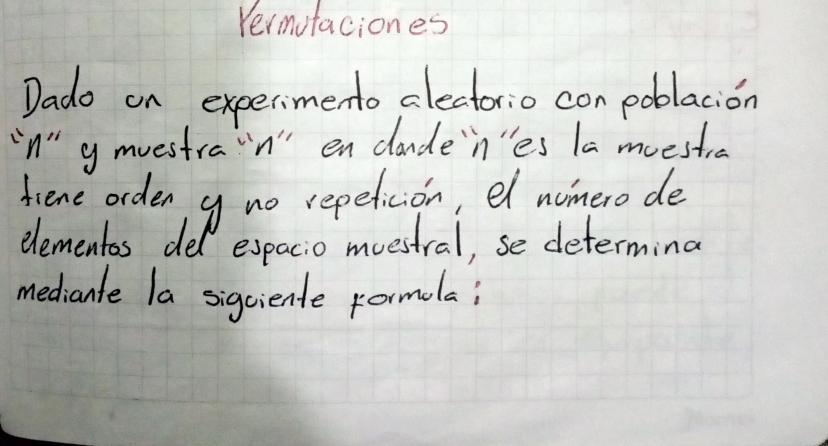 Permutaciones
Dado un experimento aleatorio con población
"n" y muestra "n" en donde "n" es la muestra
tiene orden y no repetición, el número de
elementos del espacio muestral, se determina
mediante la siguiente formula: